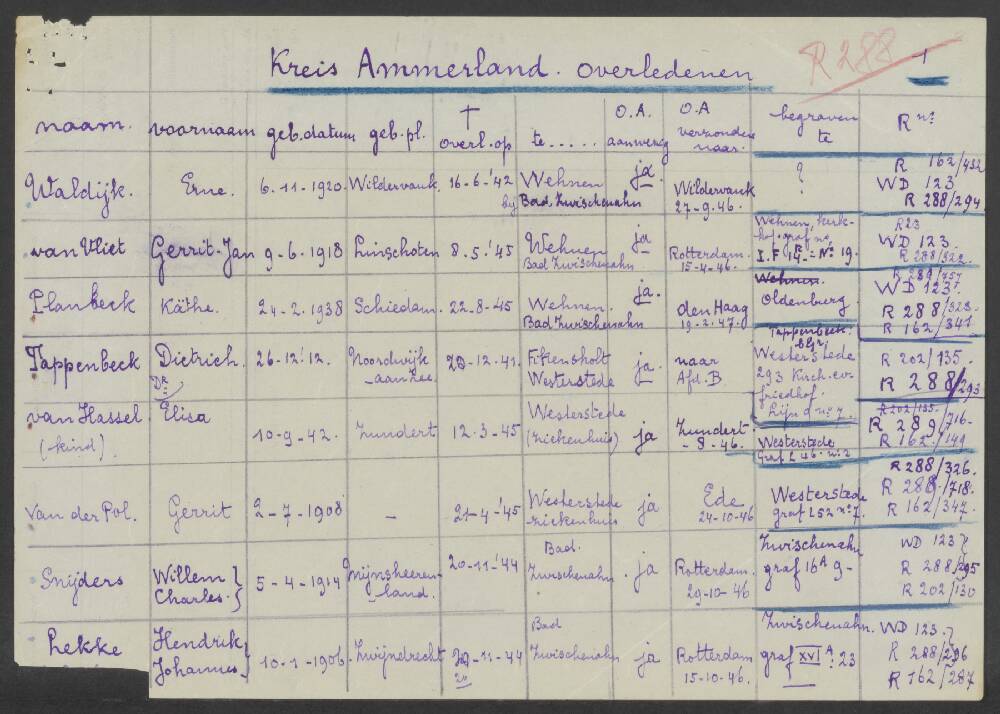 Kreis Ammerland. overledenen
R 288
1
naam. voornaam geb.datum geb.pl. † overl.op te..... O.A. aanwezig O.A verzonden naar. begraven te R no.
Waldijk. Erne. 6-11-1920. Wildervank 16-6-'42 Wehnen ja Wildervank ? R 162/432
bij Bad Zwischenahn 27-9-46. WD 123
R 288/294
van Vliet Gerrit-Jan 9-6-1918 Linschoten 8.5.'45 Wehnen ja Rotterdam. Wehnen, kerk- R23
Bad Zwischenahn 15-4-46. hof graf no WD 123.
I.F R 14 = No 19. R 288/322
Planbeck Käthe. 24-2-1938 Schiedam. 22-8-45 Wehnen. ja. den Haag Wehnen R 289/757
Bad Zwischenahn 19-2-47. Oldenburg. WD 123.
R 288/323
R 162/341
Tappenbeck Dietrich. 26-12.'12. Noordwijk 20-12-41. Fikensholt ja. naar Tappenbeck R 202/135.
Dr aan Zee. Westerstede Afd. B Westerstede R 288/293
293 Kirch. ev.
friedhof.
Lijn d no 7.
van Hassel Elisa Westerstede R 202/135.
(kind). 10-9-42. Zundert 12.3-45 (ziekenhuis) ja Zundert Westerstede R 289/716-
-8-46. Graf L 46. no 2 R 162/149
R 288/326.
Van der Pol. Gerrit 2-7-1908 - 21-4-'45 Westerstede ja Ede Westerstede R 289/718.
ziekenhuis 24-10-46 graf L52 no 7. R 162/347.
Snijders Willem } 5-4-1914 Mijnsheeren- 20-11-'44 Bad. ja Rotterdam. Zwischenahn WD 123 }
Charles. land. Zwischenahn 29-10-46 graf 16A 9- R 288/295
R 202/130
Lekke Hendrik } 10-1-1906. Zwijndrecht 20-11-44 Bad ja Rotterdam Zwischenahn. WD 123. }
Johannes 20 Zwischenahn 15-10-46. graf XVI A. 23 R 288/296
R 162/287